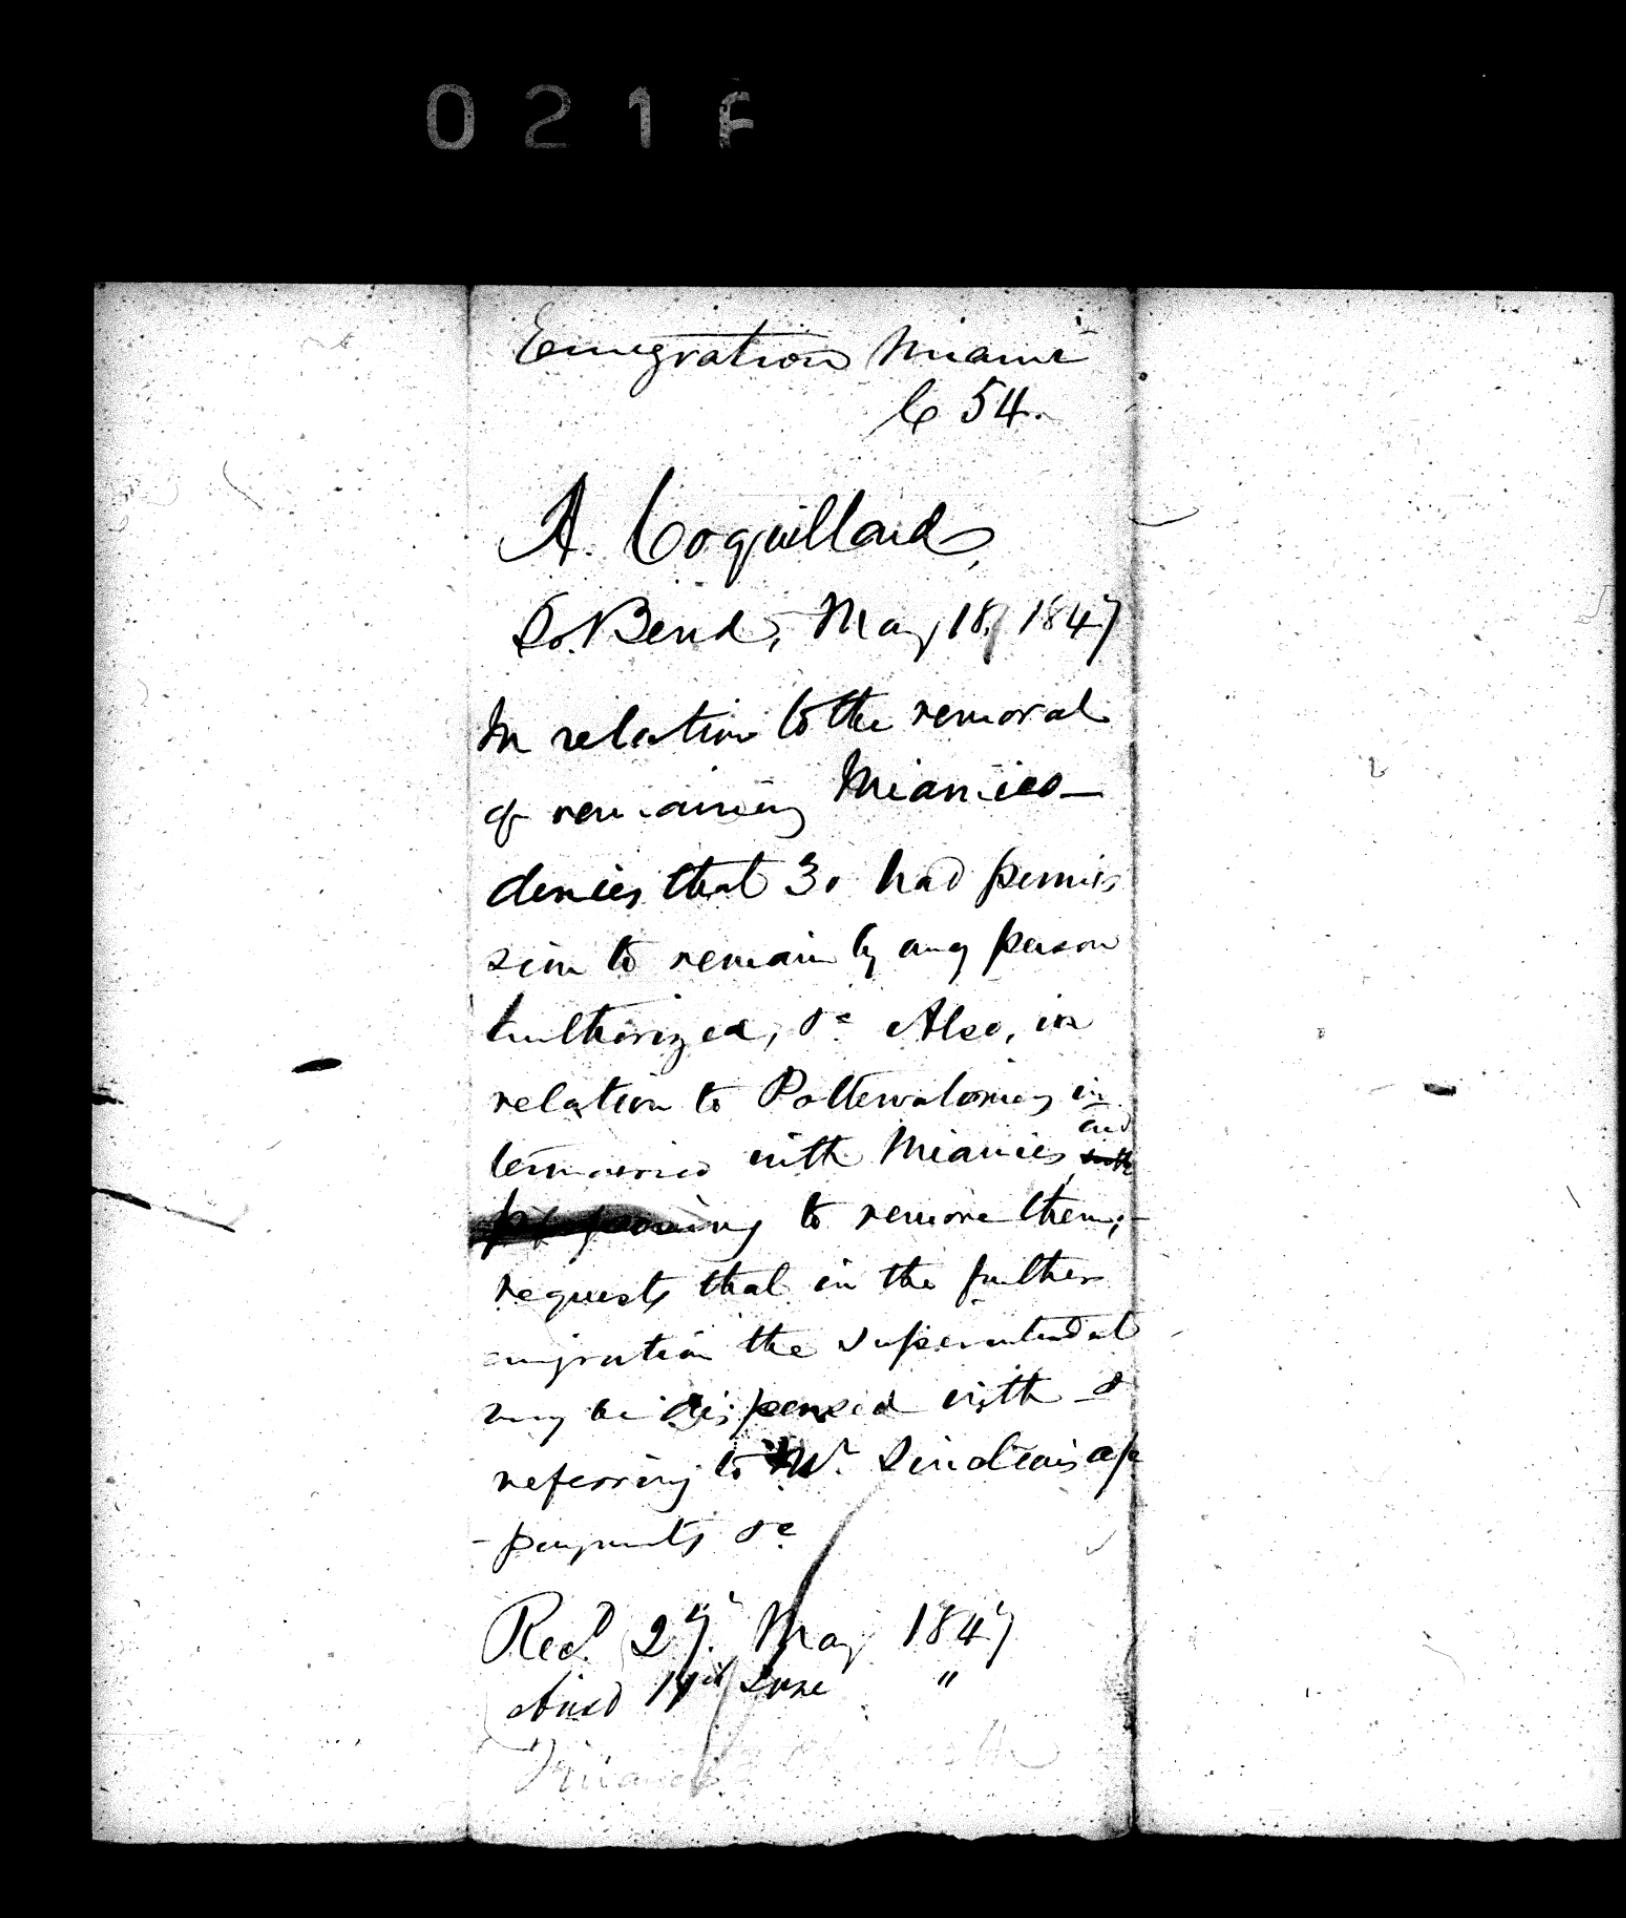 021
Emigration Miami
C 54.
A. Coquillard,
So. Bend, May 18, 1847
In relation to the removal
of remaining Miamies—
denies that 30 had permis
sion to remain by any person
authorized, &c Also, in
relation to Pottewatomies in
termarried with Miamies, and
proposing to remove them;—
requests that in the further
emigration the Superintendent
may be dispensed with &
referring to Mr. Sinclears ap
-payments &c
Recd. 27. May 1847
Ansd June "
Finance